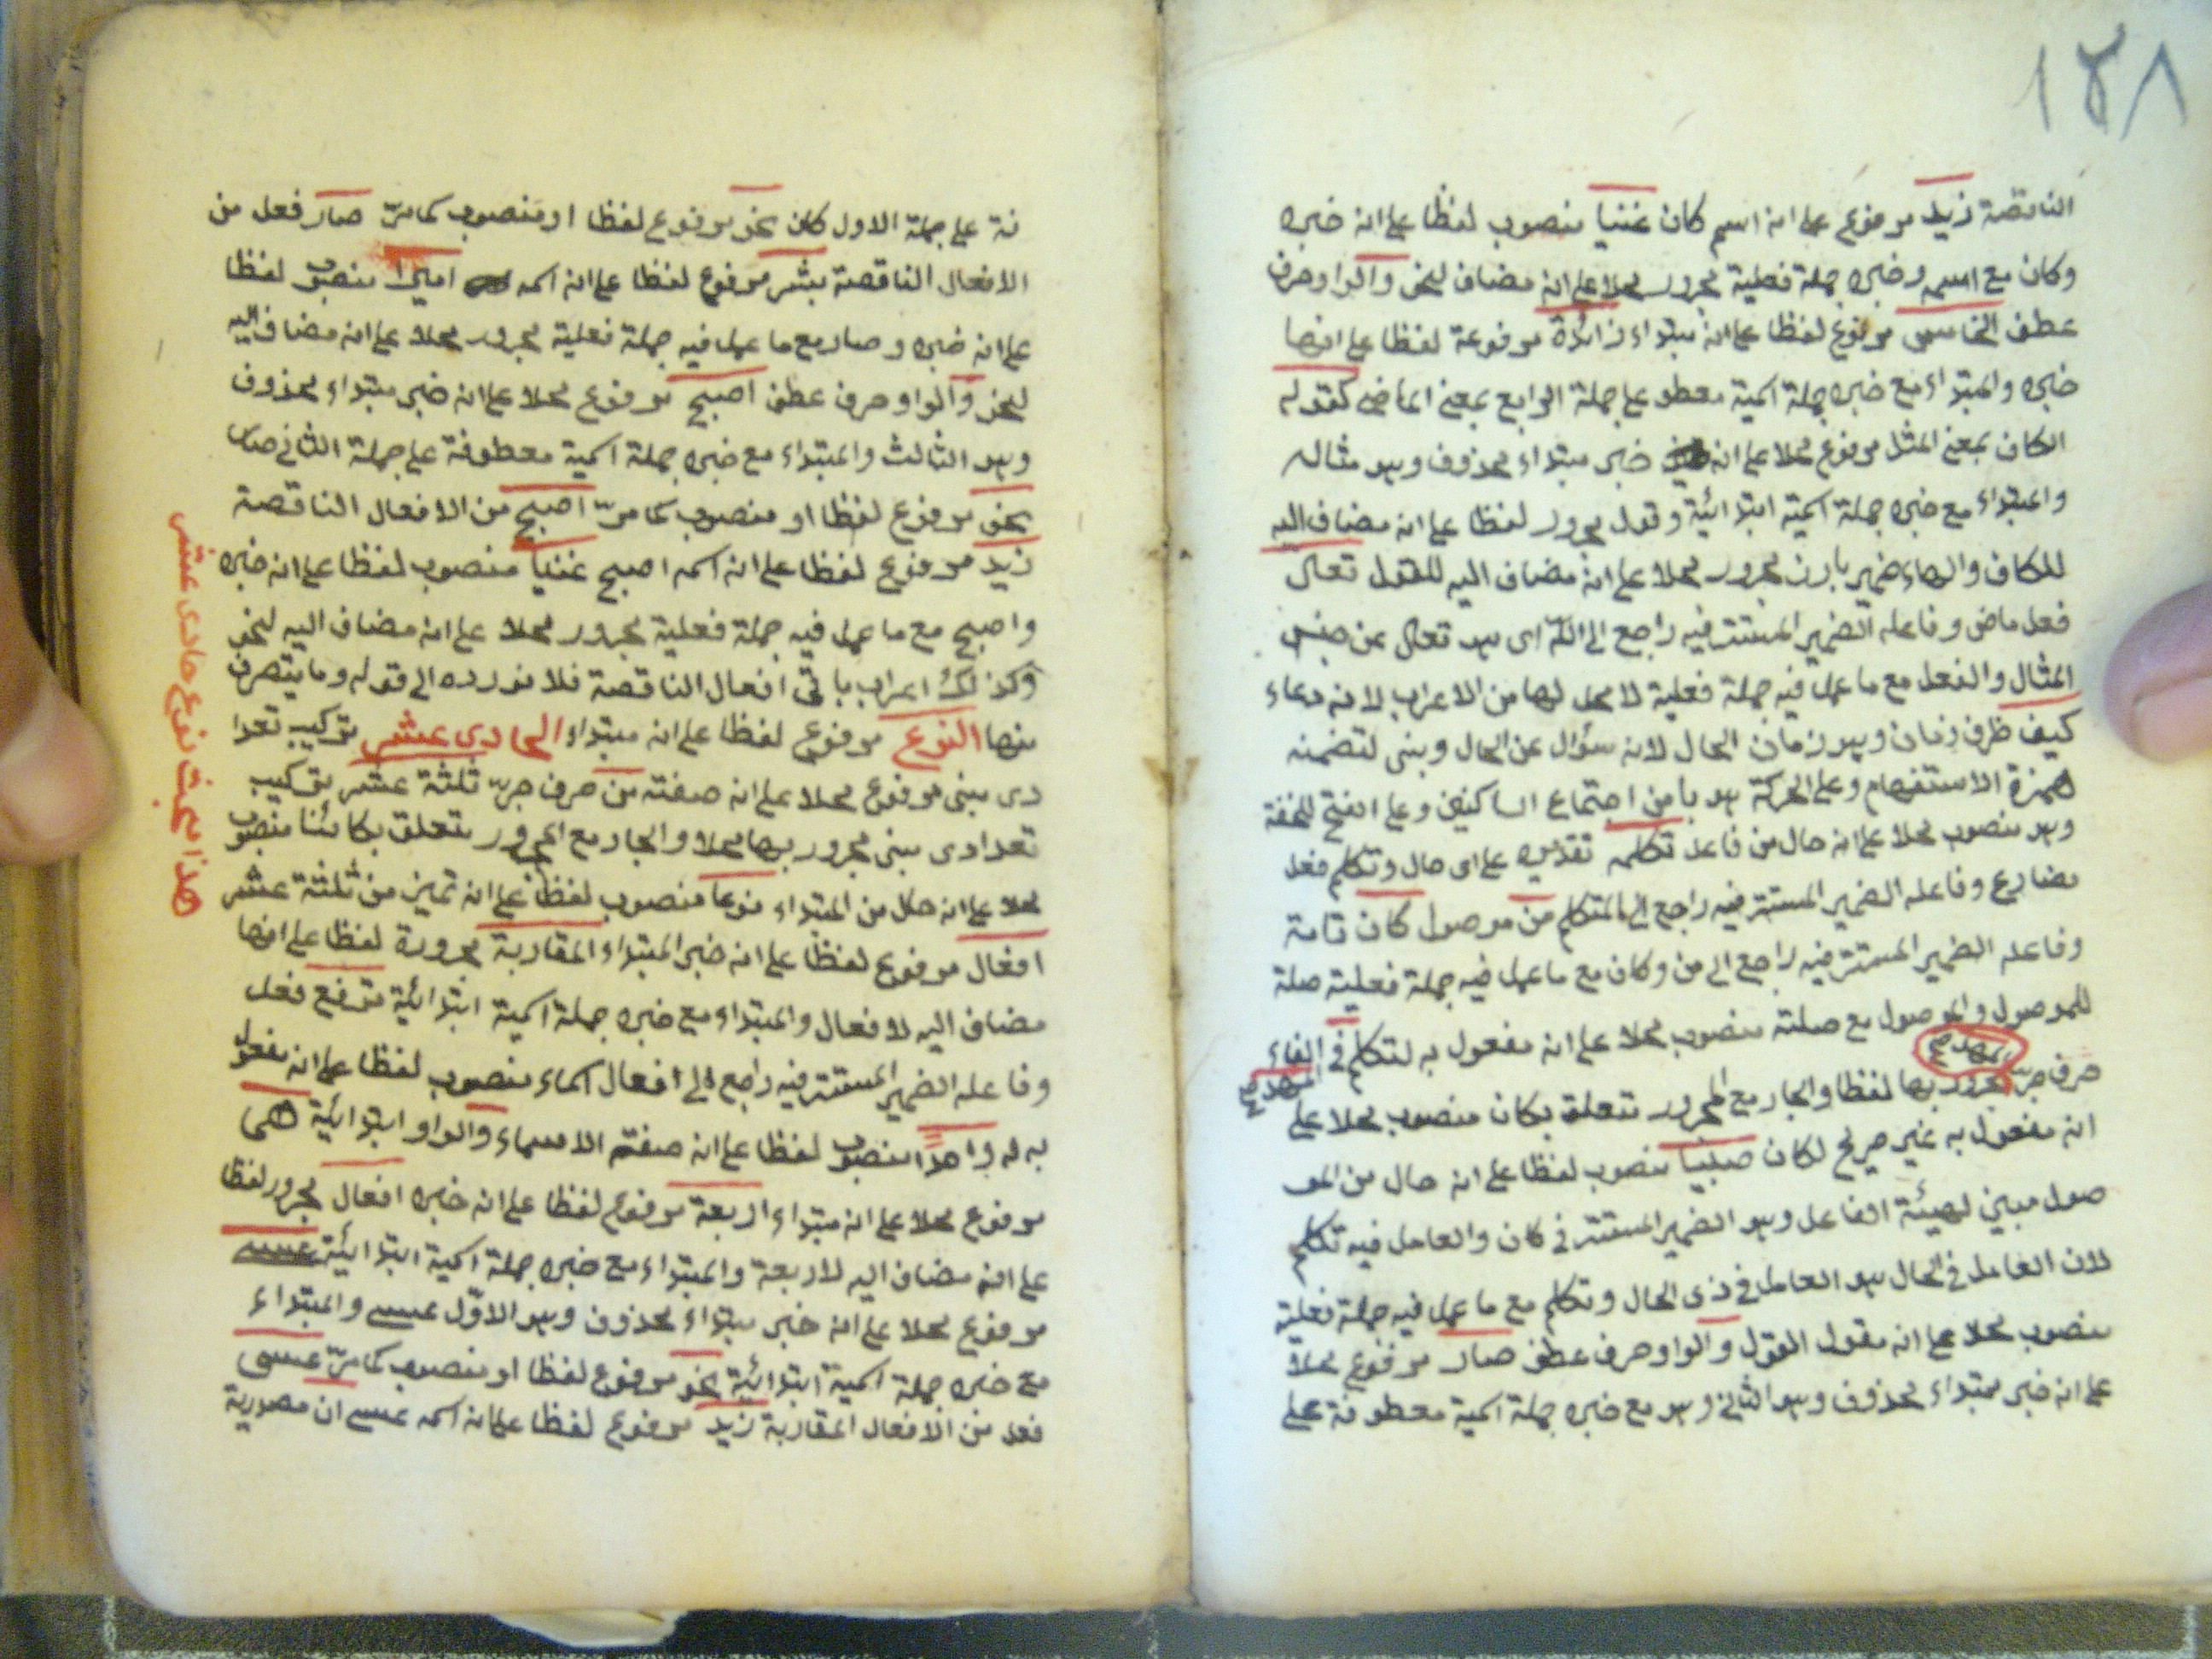 ١٢٨
الناقصة زيد مرفوع على انه اسم كان غنيا منصوب لفظا على انه خبره
وكان مع اسمه وخبره جملة فعلية مجرور محلا على انه مضاف لنحو والواو حرف
عطف الخامس مرفوع لفظا على انه مبتداء زائدة مرفوعة لفظا على انها
خبره والمبتداء مع خبره جملة اسمية معطو على جملة الرابع بمعنى الماضى كقوله
الكان بمعنى المثل مرفوع محلا على انه خبر مبتداء محذوف وهو مثاله
والمبتداء مع خبره جملة اسمية ابتدائية وقول مجرور لفظا على انه مضاف اليه
للكاف والهاء ضمير بارز مجرور محلا على انه مضاف اليه للقول تعالى
فعل ماض وفاعله الضمير المستتر فيه راجع الى الله اى هو تعالى عن جنس
المثال والفعل مع ما عمل فيه جملة فعلية لا محل لها من الاعراب لانه دعاء
كيف ظرف زمان وهو زمان الحال لانه سئوال عن الحال وبنى لتضمنه
همزة الاستفهام وعلى الحركة هربا من اجتماع الساكنين وعلى الفتح للخفة
وهو منصوب محلا على انه حال من فاعل تكلم تقديره على اى حال وتكلم فعل
مضارع وفاعله الضمير المستتر فيه راجع الى المتكلم من موصول كان تامة
وفاعله الضمير المستتر فيه راجع الى من وكان مع ما عمل فيه جملة فعلية صلة
للموصول والموصول مع صلته منصوب محلا على انه مفعول به لتكلم فى الفاء
المهد صح
حرف جر مجرور بها لفظا والجار مع المجرور متعلق بكان منصوب محلا على
انه مفعول به غير صريح لكان صبيا منصوب لفظا على انه حال من المو
صول مبين لهيئة الفاعل وهو الضمير المستتر فى كان والعامل فيه تكلم
لان العامل فى الحال هو العامل فى ذى الحال وتكلم مع ما عمل فيه جملة فعلية
منصوب محلا على انه مقول القول والواو حرف عطف صار مرفوع محلا
على انه خبر مبتداء محذوف وهو الثانى وهو مع خبره جملة اسمية معطوفة على
فة على جملة الاول كان نحو مرفوع لفظا او منصوب كما مرّ صار فعل من
الافعال الناقصة بشر مرفوع لفظا على انه اسمه اميرا منصوب لفظا
على انه خبره وصار مع ما عمل فيه جملة فعلية مجرور محلا على انه مضاف اليه
لنحو والواو حرف عطف اصبح مرفوع محلا على انه خبر مبتداء محذوف
وهو الثالث والمبتداء مع خبره جملة اسمية معطوفة على جملة الثانى صار
نحو مرفوع لفظا او منصوب كما مرّ اصبح من الافعال الناقصة
زيد مرفوع لفظا على انه اسمه اصبح غنيا منصوب لفظا على انه خبره
واصبح مع ما عمل فيه جملة فعلية مجرور محلا على انه مضاف اليه لنحو
وكذلك اعراب باقى افعال الناقصة فلا نورده الى قوله وما يتصرف
منها النوع مرفوع لفظا على انه مبتداء الحادى عشر تركيب تعدا
دى مبنى مرفوع محلا على انه صفته من حرف جرّ ثلثة عشر تركيب
تعدادى مبنى مجرور بها محلا والجار مع المجرور متعلق بكائنا منصوب
محلا على انه حال من المبتداء نوعا منصوب لفظا على انه تميز من ثلثة عشر
افعال مرفوع لفظا على انه خبر المبتداء المقاربة مجرورة لفظا على انها
مضاف اليه لافعال والمبتداء مع خبره جملة اسمية ابتدائية ترفع فعل
وفاعله الضمير المستتر فيه راجع الى افعال اسماء منصوب لفظا على انه مفعول
به له واحدا منصوب لفظا على انه صفته الاسماء والواو ابتدائية هى
مرفوع محلا على انه مبتداء اربعة مرفوع لفظا على انه خبره افعال مجرور لفظا
على انه مضاف اليه لاربعة والمبتداء مع خبره جملة اسمية ابتدائية عسى
مرفوع محلا على انه خبر مبتداء محذوف وهو الاوّل عسى والمبتداء
مع خبره جملة اسمية ابتدائية نحو مرفوع لفظا او منصوب كما مرّ عسى
فعل من الافعال المقاربة زيد مرفوع لفظا على انه اسمه عسى ان مصدرية
هذا بحث نوع حادى عشر